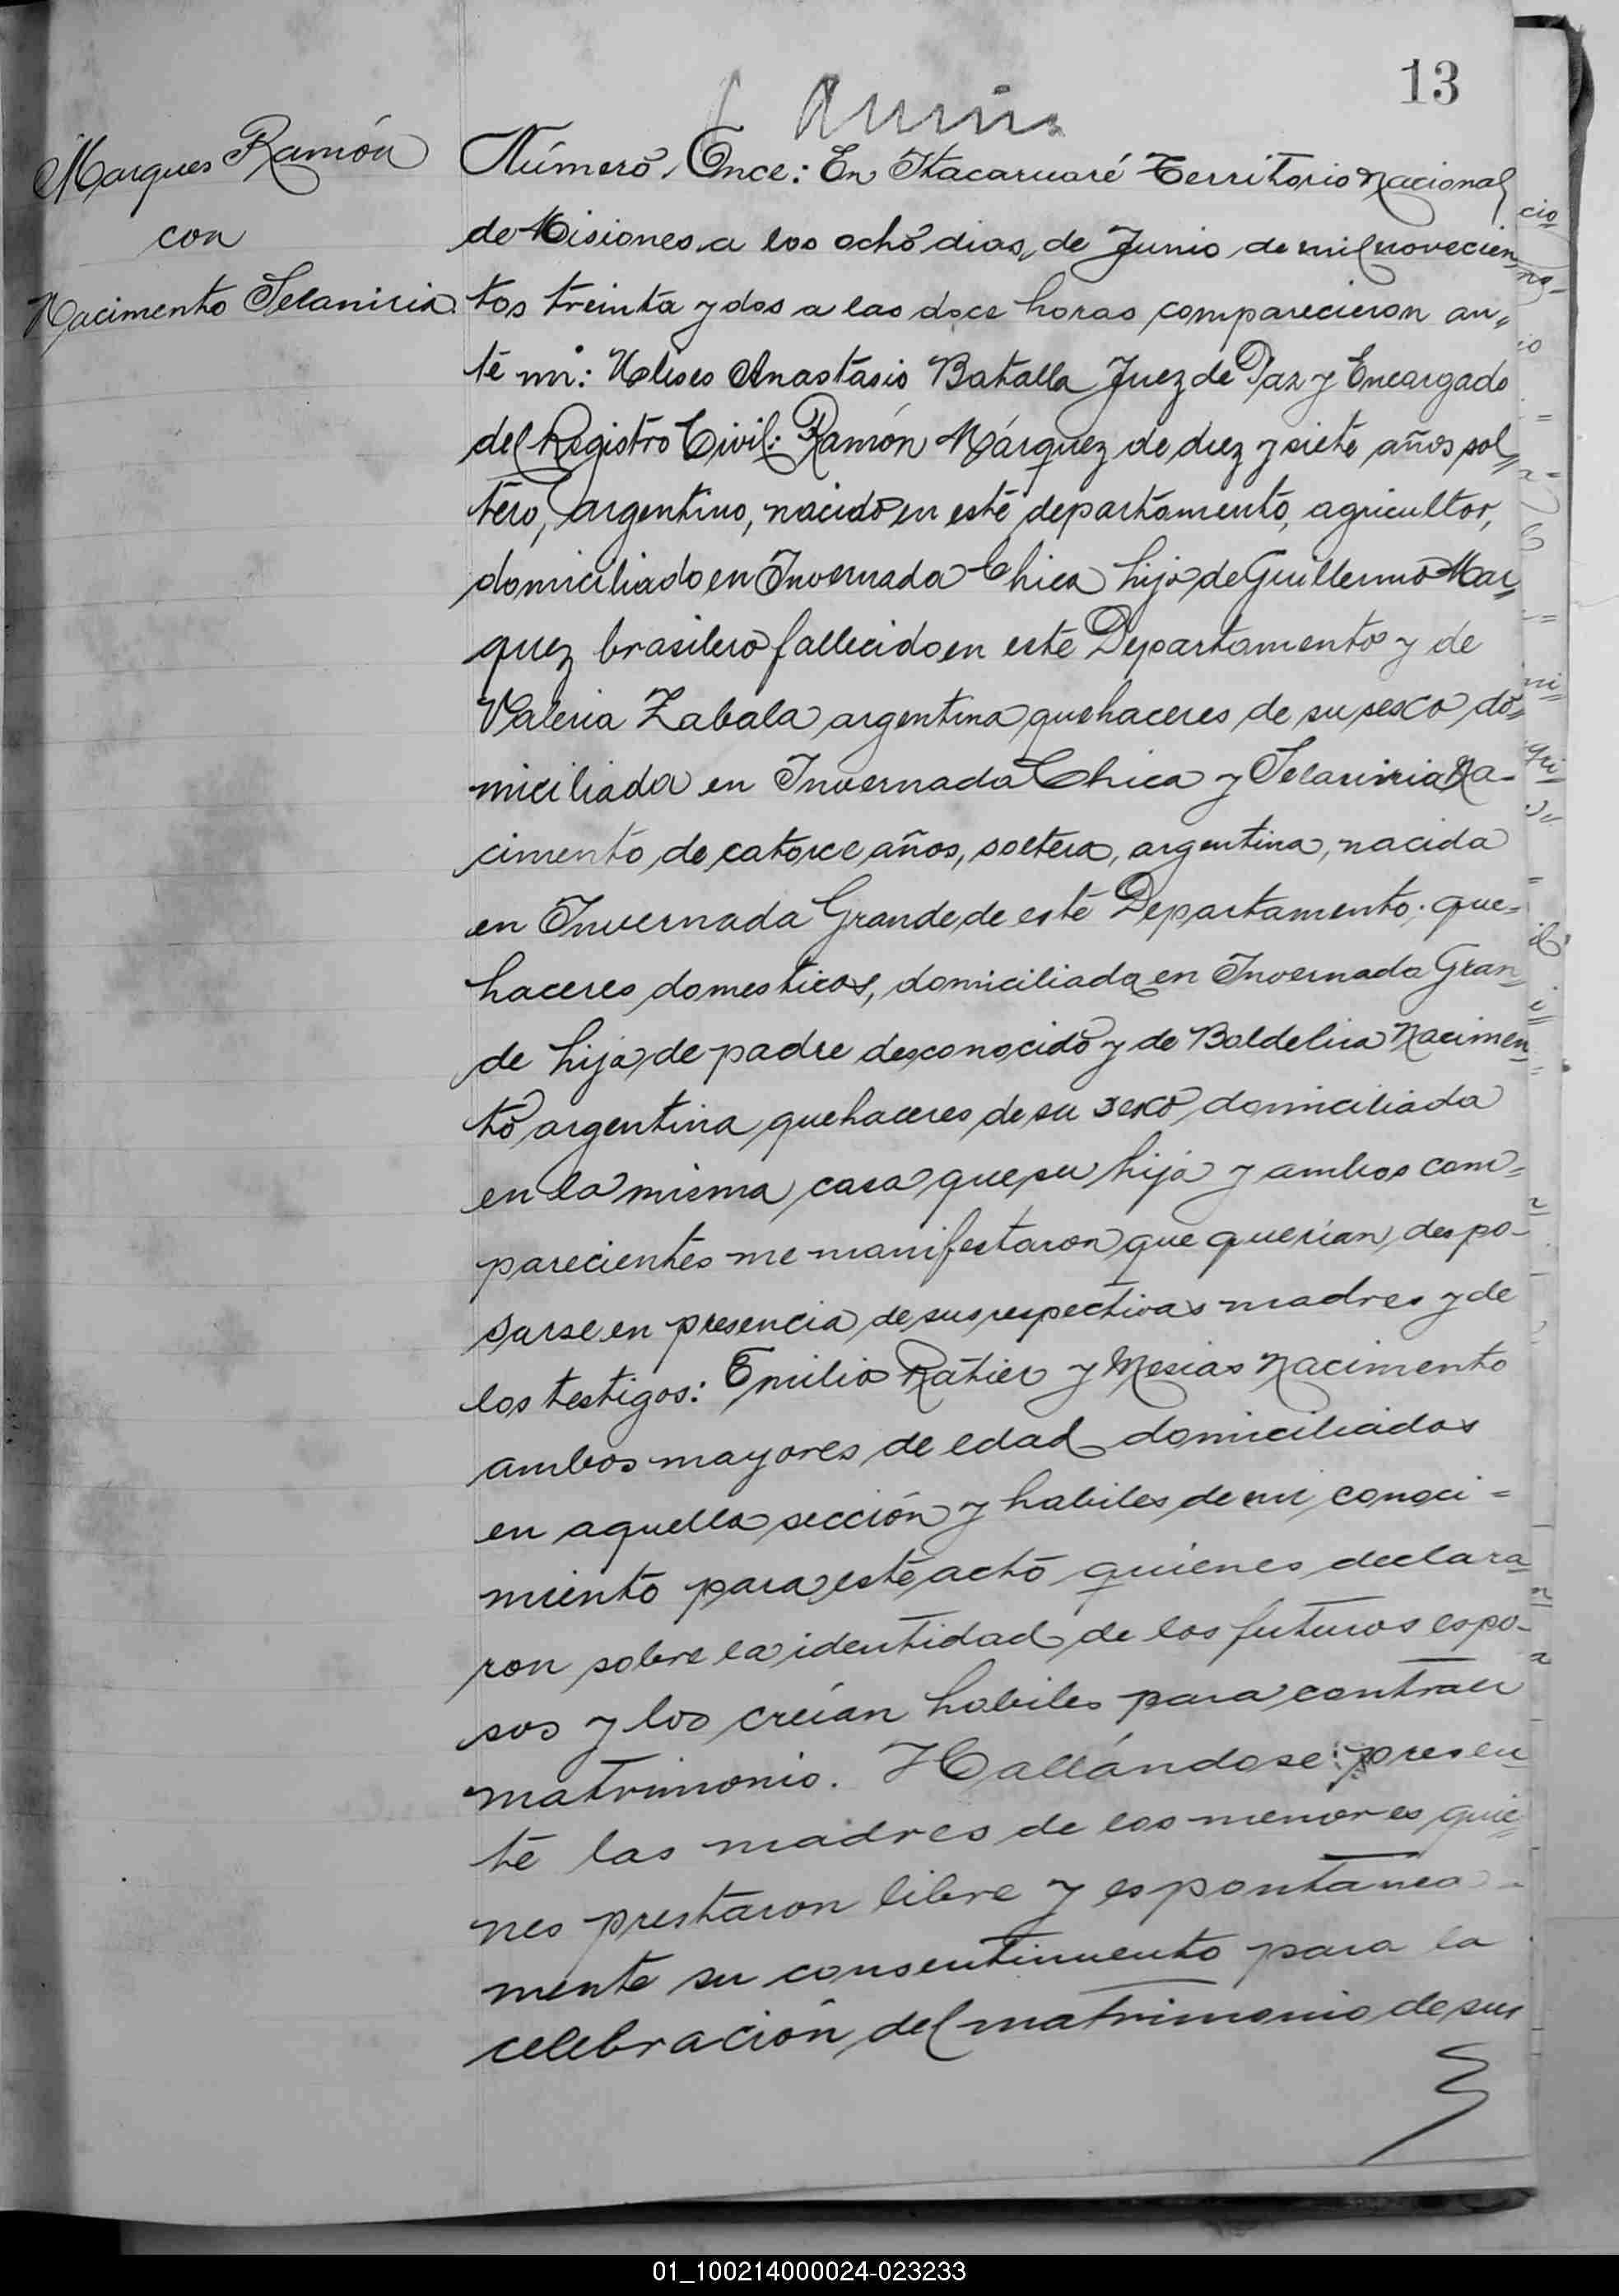 13
Marques Ramón
con
Nacimento Selaniria.
Número Once: En Itacaruaré Territorio Nacional
de Misiones a los ocho dias, de Junio de mil novecien
tos treinta y dos a las doce horas comparecieron an„
te mi: Ulises Anastasio Batalla Juez de Paz y Encargado
del Registro Civil: Ramón Márquez de diez y siete años sol„
tero, argentino, nacido en este departamento, agricultor,
domiciliado en Invernada Chica hijo de Guillermo Mar„
quez brasilero fallecido en este Departamento y de
Valeria Zabala argentina quehaceres de su sexo do„
miciliada en Invernada Chica y Selaniria Na-
cimento de catorce años, soltera, argentina, nacida
en Invernada Grande de este Departamento. que=
haceres domesticos, domiciliada en Invernada Gran
de hija de padre desconocido y de Baldelira Nacimen
to argentina quehaceres de su sexo domiciliada
en la misma casa que su hija y ambos com=
parecientes me manifestaron que querían despo-
sarse en presencia de sus respectivas madres y de
los testigos: Emilio Ratier y Mesias Nacimento
ambos mayores de edad domiciliados
en aquella sección y habiles de mi conoci=
miento para este acto quienes declara
ron sobre la identidad de los futuros espo-
sos y los creían habiles para contraer
matrimonio. Hallándose presen
te las madres de los menores quie
nes prestaron libre y espontanea-
mente su consentimiento para la
celebración del matrimonio de sus
01_100214000024-023233